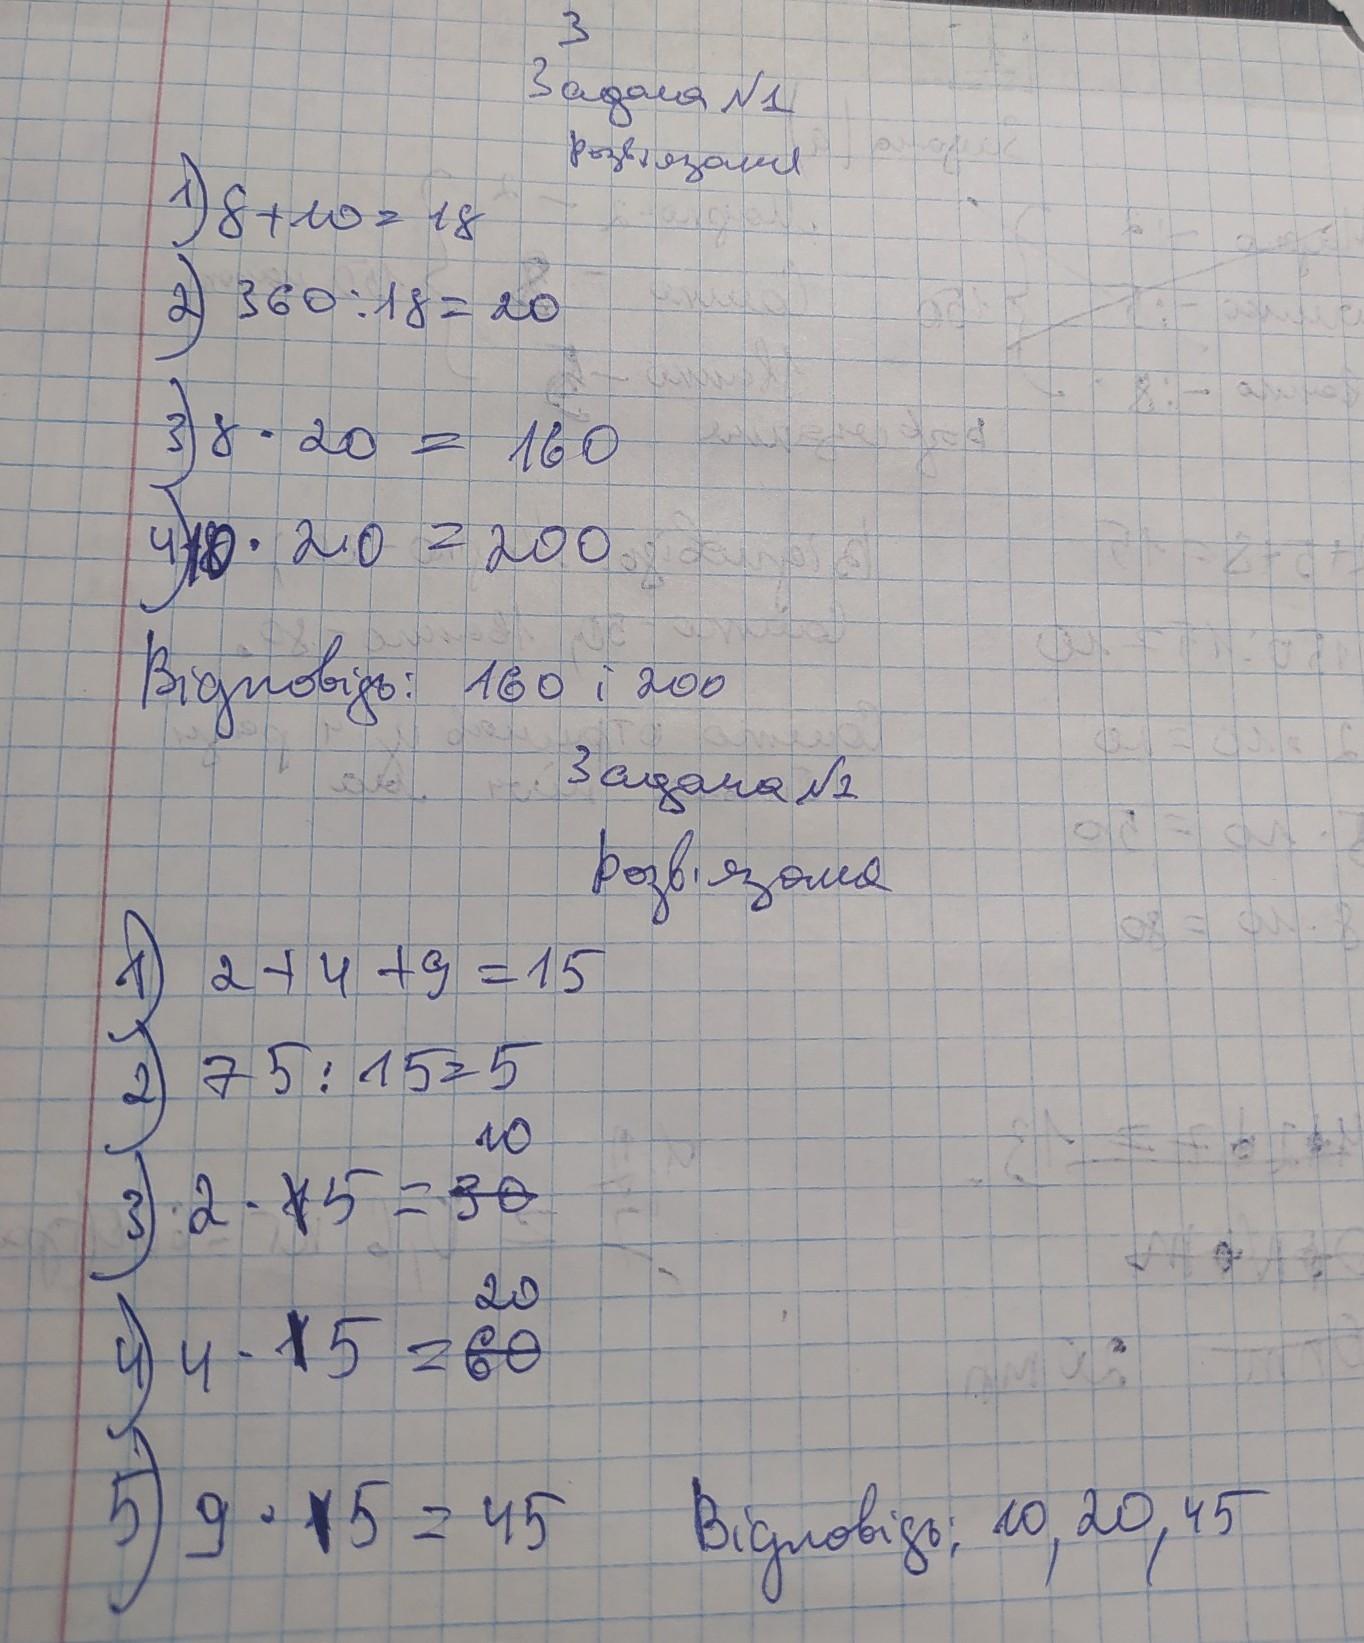 3
Задача №1
Розв'язання
1) 8+10=18
2) 360:18=20
3) 8·20=160
4) 10·20=200
Відповідь: 160 і 200
Задача №2
Розв'язання
1) 2+4+9=15
2) 75:15=5
10
3) 2·5=30
20
4) 4·5=60
5) 9·5=45
Відповідь: 10, 20, 45